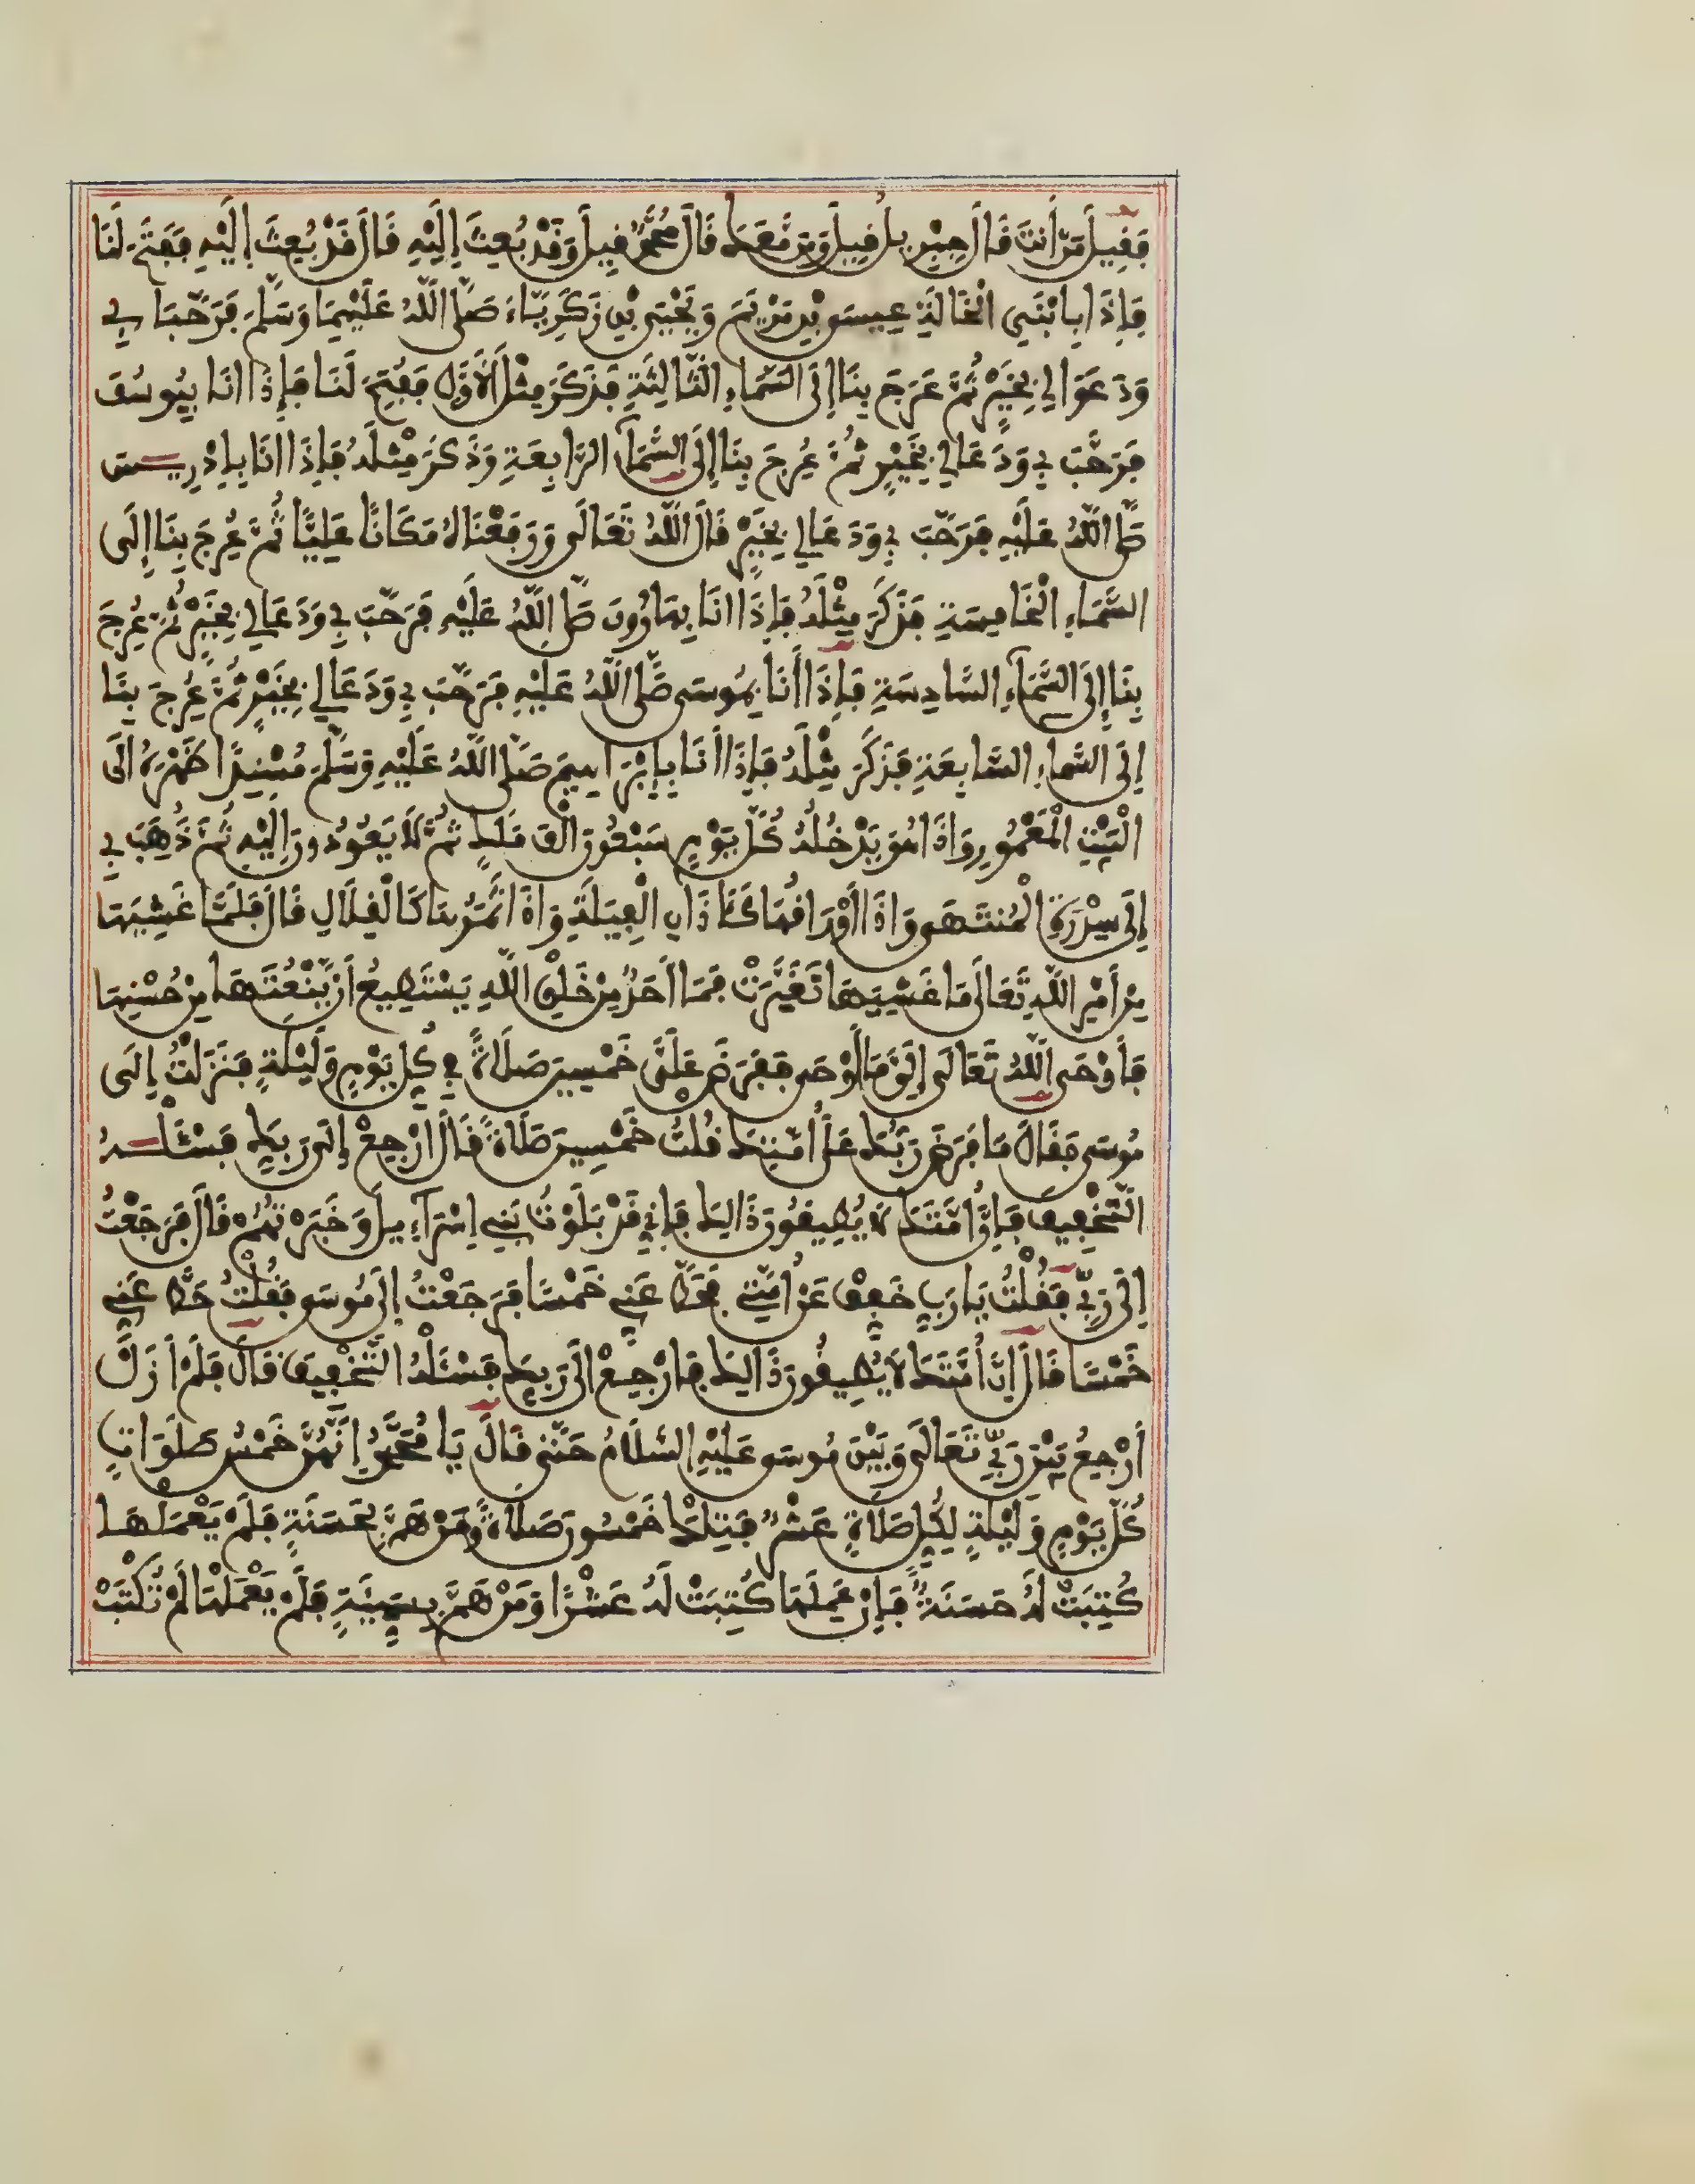 فَقِيلَ مَنْ أَنتَ قَالَ جِبْرِيلُ قِيلَ وَمَن مَّعَكَ قَالَ مُحَمَّدٌ قِيلَ وَقَدْ بُعِثَ إِلَيْهِ قَالَ قَدْ بُعِثَ إِلَيْهِ فَفَتَحَ لَنَا
فَإِذَا بِابْنَيِ الْخَالَةِ عِيسَى بْنِ مَرْيَمَ وَيَحْيَى بْنِ زَكَرِيَّاءَ صَلَّى اللَّهُ عَلَيْهِمَا وَسَلَّمَ فَرَحَّبَا بِي
وَدَعَوَا لِي بِخَيْرٍ ثُمَّ عَرَجَ بِنَا إِلَى السَّمَاءِ الثَّالِثَةِ فَذَكَرَ مِثْلَ الْأَوَّلِ فَفُتِحَ لَنَا فَإِذَا أَنَا بِيُوسُفَ
فَرَحَّبَ بِي وَدَعَا لِي بِخَيْرٍ ثُمَّ عُرِجَ بِنَا إِلَى السَّمَآءِ الرَّابِعَةِ وَذَكَرَ مِثْلَهُ فَإِذَا أَنَا بِإِدْرِيسَ
صَلَّى اللَّهُ عَلَيْهِ فَرَحَّبَ بِي وَدَعَا لِي بِخَيْرٍ قَالَ اللَّهُ تَعَالَى وَرَفَعْنَاهُ مَكَانًا عَلِيًّا ثُمَّ عُرِجَ بِنَا إِلَى
السَّمَاءِ الْخَامِسَةِ فَذَكَرَ مِثْلَهُ فَإِذَا أَنَا بِهَارُونَ صَلَّى اللَّهُ عَلَيْهِ فَرَحَّبَ بِي وَدَعَا لِي بِخَيْرٍ ثُمَّ عُرِجَ
بِنَا إِلَى السَّمَآءِ السَّادِسَةِ فَإِذَا أَنَا بِمُوسَى صَلَّى اللَّهُ عَلَيْهِ فَرَحَّبَ بِي وَدَعَا لِي بِخَيْرٍ ثُمَّ عُرِجَ بِنَا
إِلَى السَّمَاءِ السَّابِعَةِ فَذَكَرَ مِثْلَهُ فَإِذَا أَنَا بِإِبْرَاهِيمَ صَلَّى اللَّهُ عَلَيْهِ وَسَلَّمَ مُسْنِدًا ظَهْرَهُ إِلَى
الْبَيْتِ الْمَعْمُورِ وَإِذَا هُوَ يَدْخُلُهُ كُلَّ يَوْمٍ سَبْعُونَ أَلْفَ مَلَكٍ ثُمَّ لَا يَعُودُونَ إِلَيْهِ ثُمَّ ذَهَبَ بِي
إِلَى سِدْرَةِ الْمُنتَهَى وَإِذَا أَوْرَاقُهَا كَآذَانِ الْفِيَلَةِ وَإِذَا ثَمَرُهَا كَالْقِلَالِ قَالَ فَلَمَّا غَشِيَهَا
مِنْ أَمْرِ اللَّهِ تَعَالَى مَا غَشِيَهَا تَغَيَّرَتْ فَمَا أَحَدٌ مِنْ خَلْقِ اللَّهِ يَسْتَطِيعُ أَنْ يَنْعَتَهَا مِنْ حُسْنِهَا
فَأَوْحَى اللَّهُ تَعَالَى إِلَيَّ مَا أَوْحَى فَفَرَضَ عَلَيَّ خَمْسِينَ صَلَاةً فِي كُلِّ يَوْمٍ وَلَيْلَةٍ فَنَزَلْتُ إِلَى
مُوسَى فَقَالَ مَا فَرَضَ رَبُّكَ عَلَى أُمَّتِكَ قُلْتُ خَمْسِينَ صَلَاةً قَالَ ارْجِعْ إِلَى رَبِّكَ فَسْئَلْهُ
التَّخْفِيفَ فَإِنَّ أُمَّتَكَ لَا يُطِيقُونَ ذَالِكَ فَإِنِّي قَدْ بَلَوْتُ بَنِي إِسْرَآءِيلَ وَخَبَرْتُهُمْ قَالَ فَرَجَعْتُ
إِلَى رَبِّي فَقُلْتُ يَا رَبِّ خَفِّفْ عَنْ أُمَّتِي فَحَطَّ عَنِّي خَمْسًا فَرَجَعْتُ إِلَى مُوسَى فَقُلْتُ حَطَّ عَنِّي
خَمْسًا قَالَ إِنَّ أُمَّتَكَ لَا يُطِيقُونَ ذَالِكَ فَارْجِعْ إِلَى رَبِّكَ فَسْئَلْهُ التَّخْفِيفَ قَالَ فَلَمْ أَزَلْ
أَرْجِعُ بَيْنَ رَبِّي تَعَالَى وَبَيْنَ مُوسَى عَلَيْهِ السَّلَامُ حَتَّى قَالَ يَا مُحَمَّدُ إِنَّهُنَّ خَمْسُ صَلَوَاتٍ
كُلَّ يَوْمٍ وَلَيْلَةٍ لِكُلِّ صَلَاةٍ عَشْرٌ فَتِلْكَ خَمْسُونَ صَلَاةً وَمَنْ هَمَّ بِحَسَنَةٍ فَلَمْ يَعْمَلْهَا
كُتِبَتْ لَهُ حَسَنَةً فَإِنْ عَمِلَهَا كُتِبَتْ لَهُ عَشْرًا وَمَنْ هَمَّ بِسَيِّئَةٍ فَلَمْ يَعْمَلْهَا لَمْ تُكْتَبْ